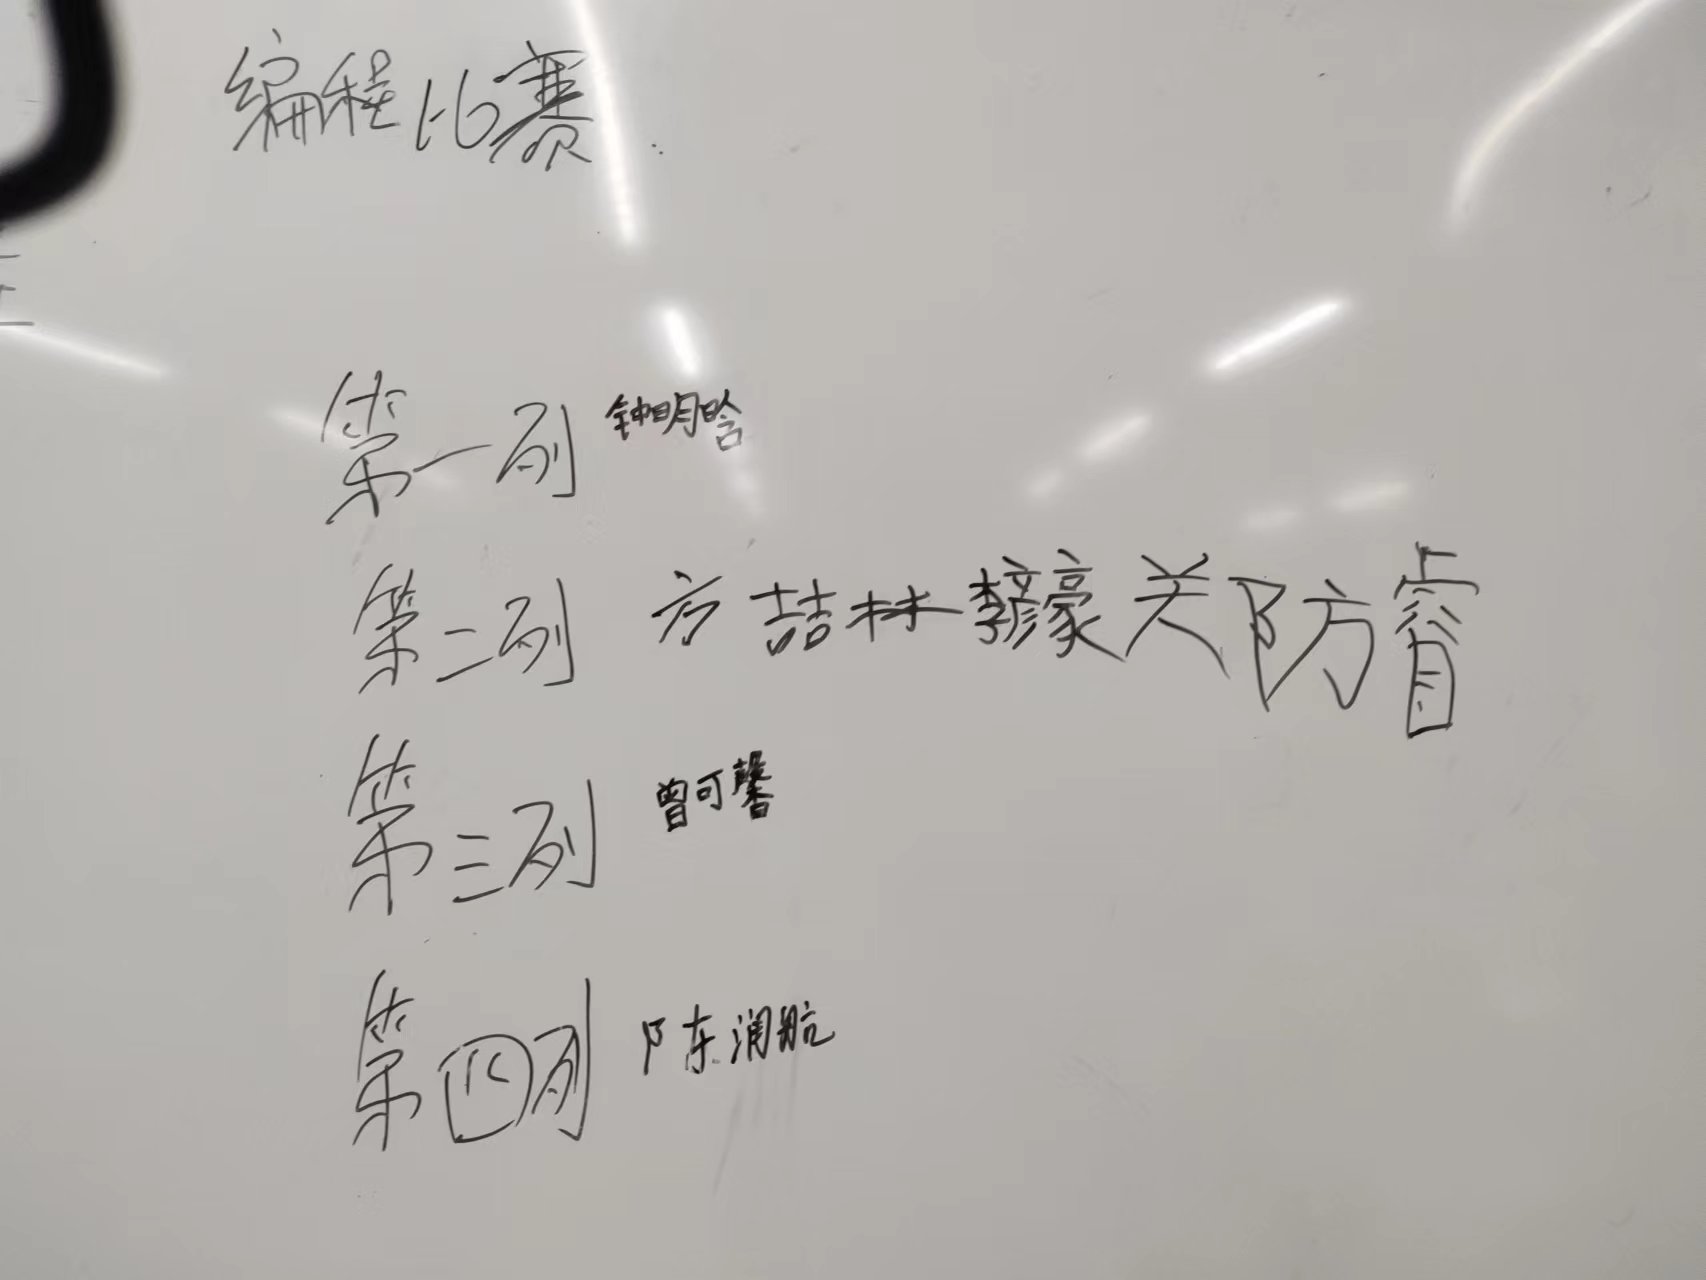 编程比赛
第一列 钟明晗
第二列 方喆林 李彦濠 关防睿
第三列 曾可馨
第四列 陈润航